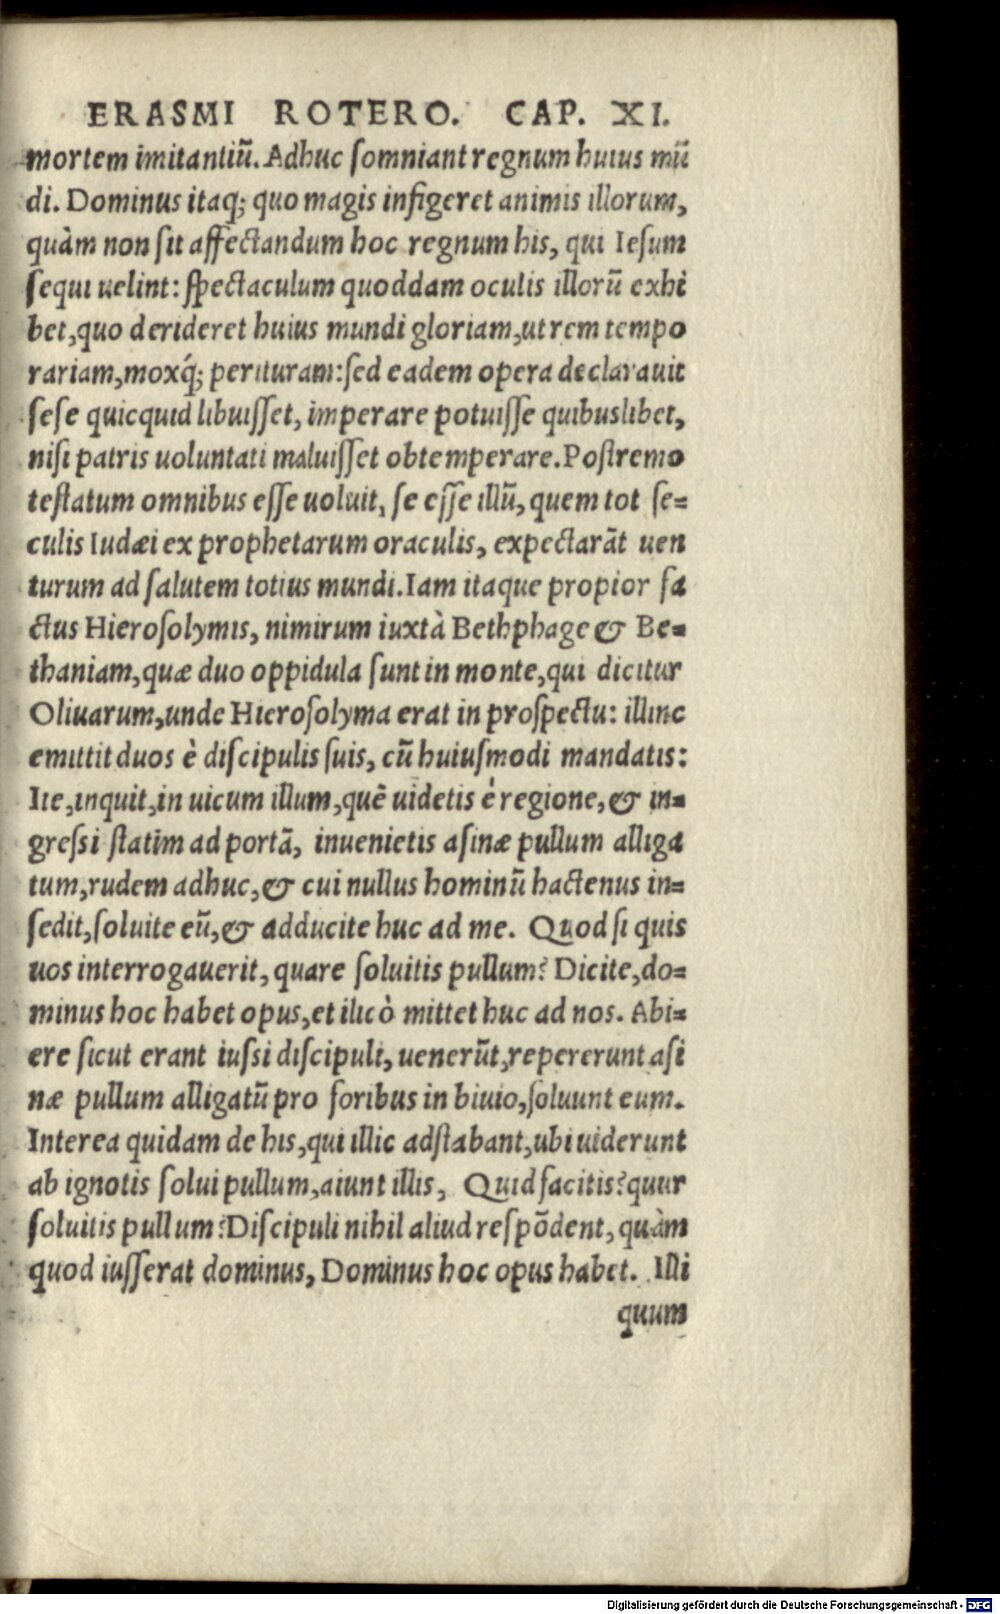 ERASMI ROTERO. CAP. XI.
mortem imitantiũ. Adhuc ſomniant regnum huius mũ
di. Dominus itaq; quo magis infigeret animis illorum,
quàm non ſit affectandum hoc regnum his, qui Ieſum
ſequi uelint: ſpectaculum quoddam oculis illorũ exhi
bet, quo derideret huius mundi gloriam, ut rem tempo
rariam, moxq́; perituram: ſed eadem opera declarauit
ſeſe quicquid libuiſſet, imperare potuiſſe quibuslibet,
niſi patris uoluntati maluiſſet obtemperare. Poſtremo
teſtatum omnibus eſſe uoluit, ſe eſſe illũ, quem tot ſe=
culis Iudæi ex prophetarum oraculis, expectarãt uen
turum ad ſalutem totius mundi. Iam itaque propior fa
ctus Hieroſolymis, nimirum iuxtà Bethphage & Be=
thaniam, quæ duo oppidula ſunt in monte, qui dicitur
Oliuarum, unde Hieroſolyma erat in proſpectu: illinc
emittit duos è diſcipulis ſuis, cũ huiuſmodi mandatis:
Ite, inquit, in uicum illum, quẽ uidetis è regione, & in=
greſsi ſtatim ad portã, inuenietis aſinæ pullum alliga
tum, rudem adhuc, & cui nullus hominũ hactenus in=
ſedit, ſoluite eũ, & adducite huc ad me. Quod ſi quis
uos interrogauerit, quare ſoluitis pullum? Dicite, do=
minus hoc habet opus, et ilicò mittet huc ad nos. Abi=
ere ſicut erant iuſsi diſcipuli, uenerũt, repererunt aſi
næ pullum alligatũ pro foribus in biuio, ſoluunt eum.
Interea quidam de his, qui illic adſtabant, ubi uiderunt
ab ignotis ſolui pullum, aiunt illis, Quid facitis? quur
ſoluitis pullum? Diſcipuli nihil aliud reſpõdent, quàm
quod iuſſerat dominus, Dominus hoc opus habet. Illi
quum
Digitalisierung gefördert durch die Deutsche Forschungsgemeinschaft - DFG